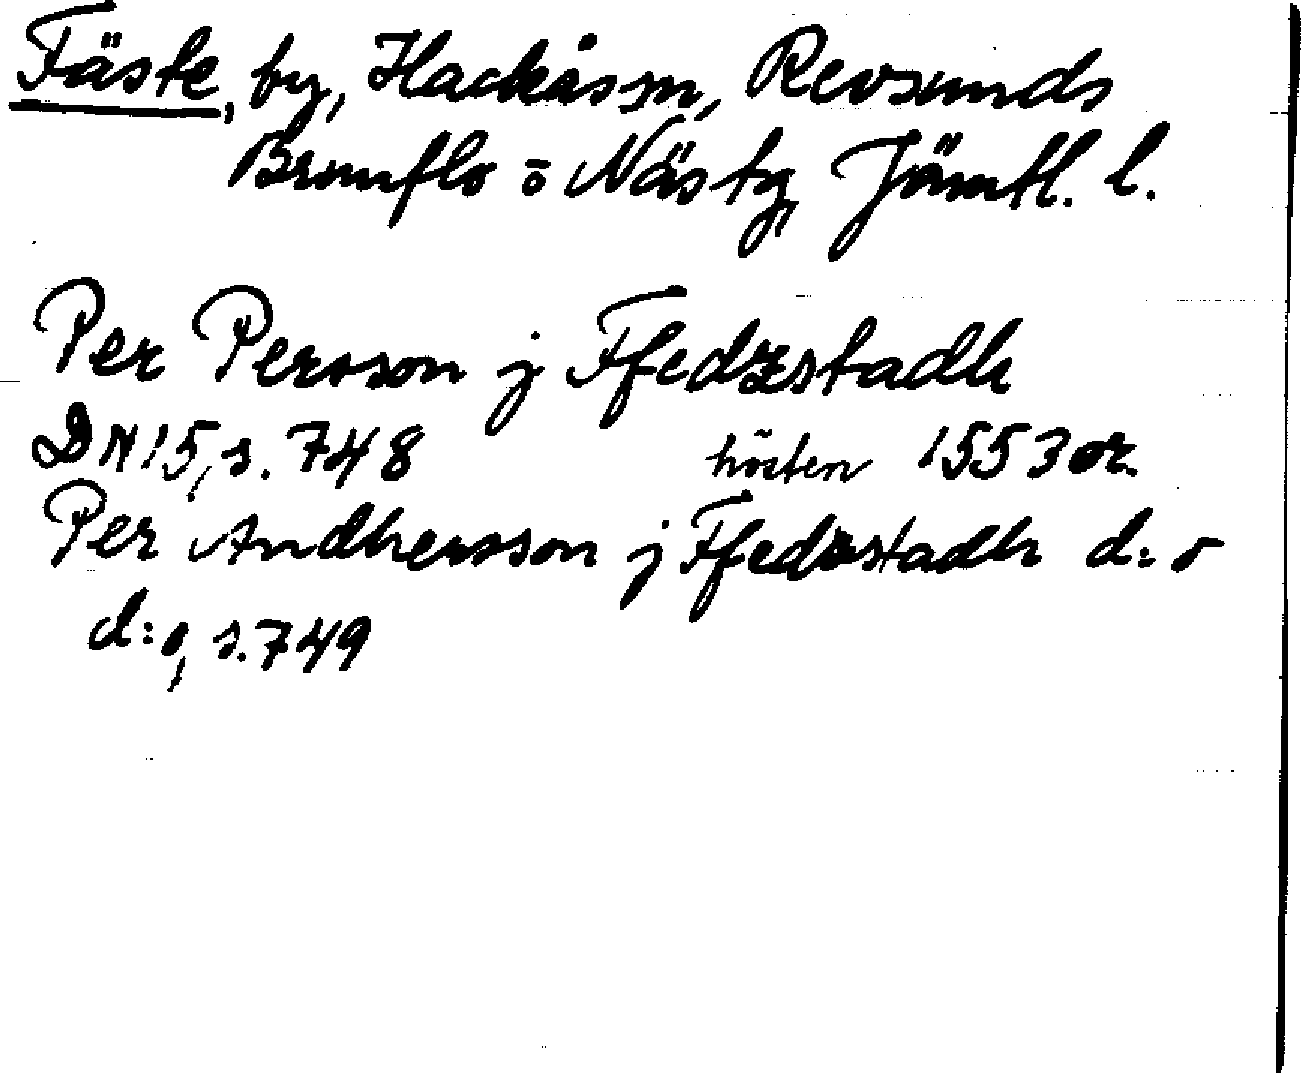 Fäste, by, Hackås sn, Revsunds
Brunflo o Näs tg, Jämtl. l.
Per Persson j Ffedzstadh
DN 15, s. 748 hösten 1553 or.
Per Andhersson j Ffedzstadh d:o
d:o, s. 749